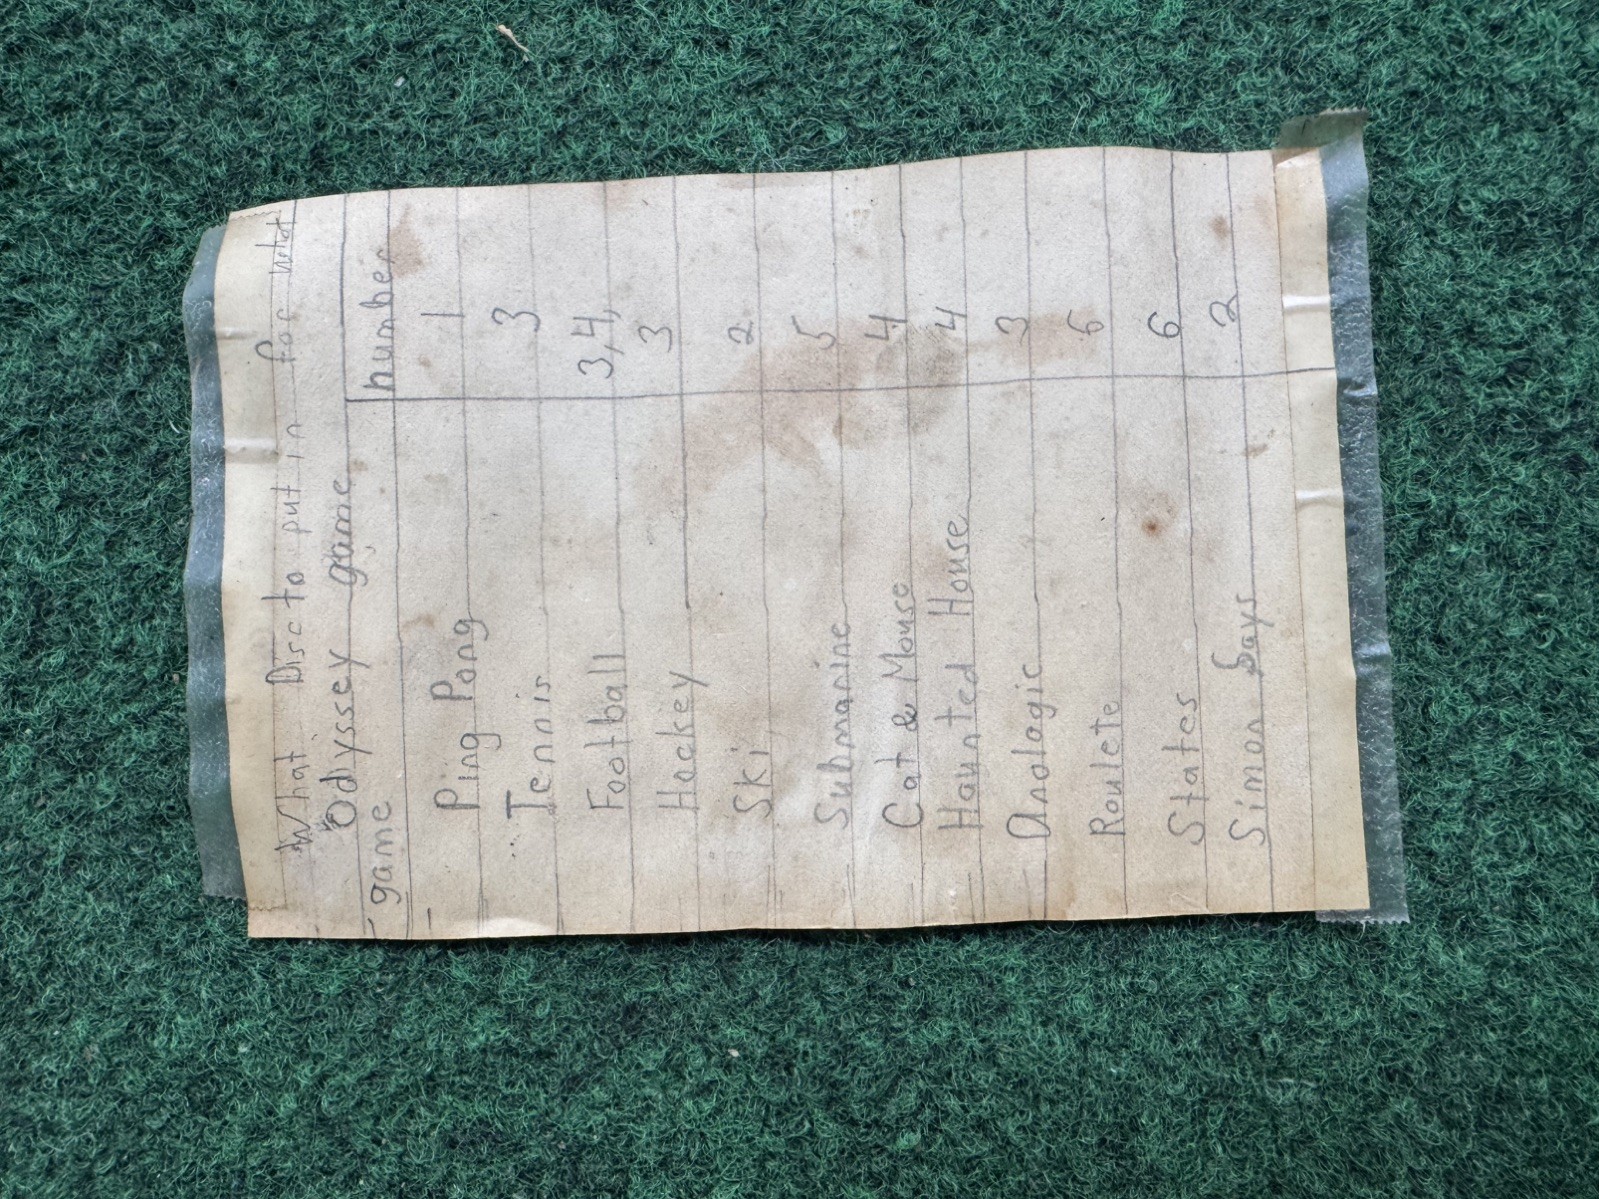 What Disc to put in for what
Odyssey game
game number
Ping Pong 1
Tennis 3
Football 3,4,
Hockey 3
Ski 2
Submarine 5
Cat & Mouse 4
Haunted House 4
Anologic 3
Roulete 6
States 6
Simon Says 2